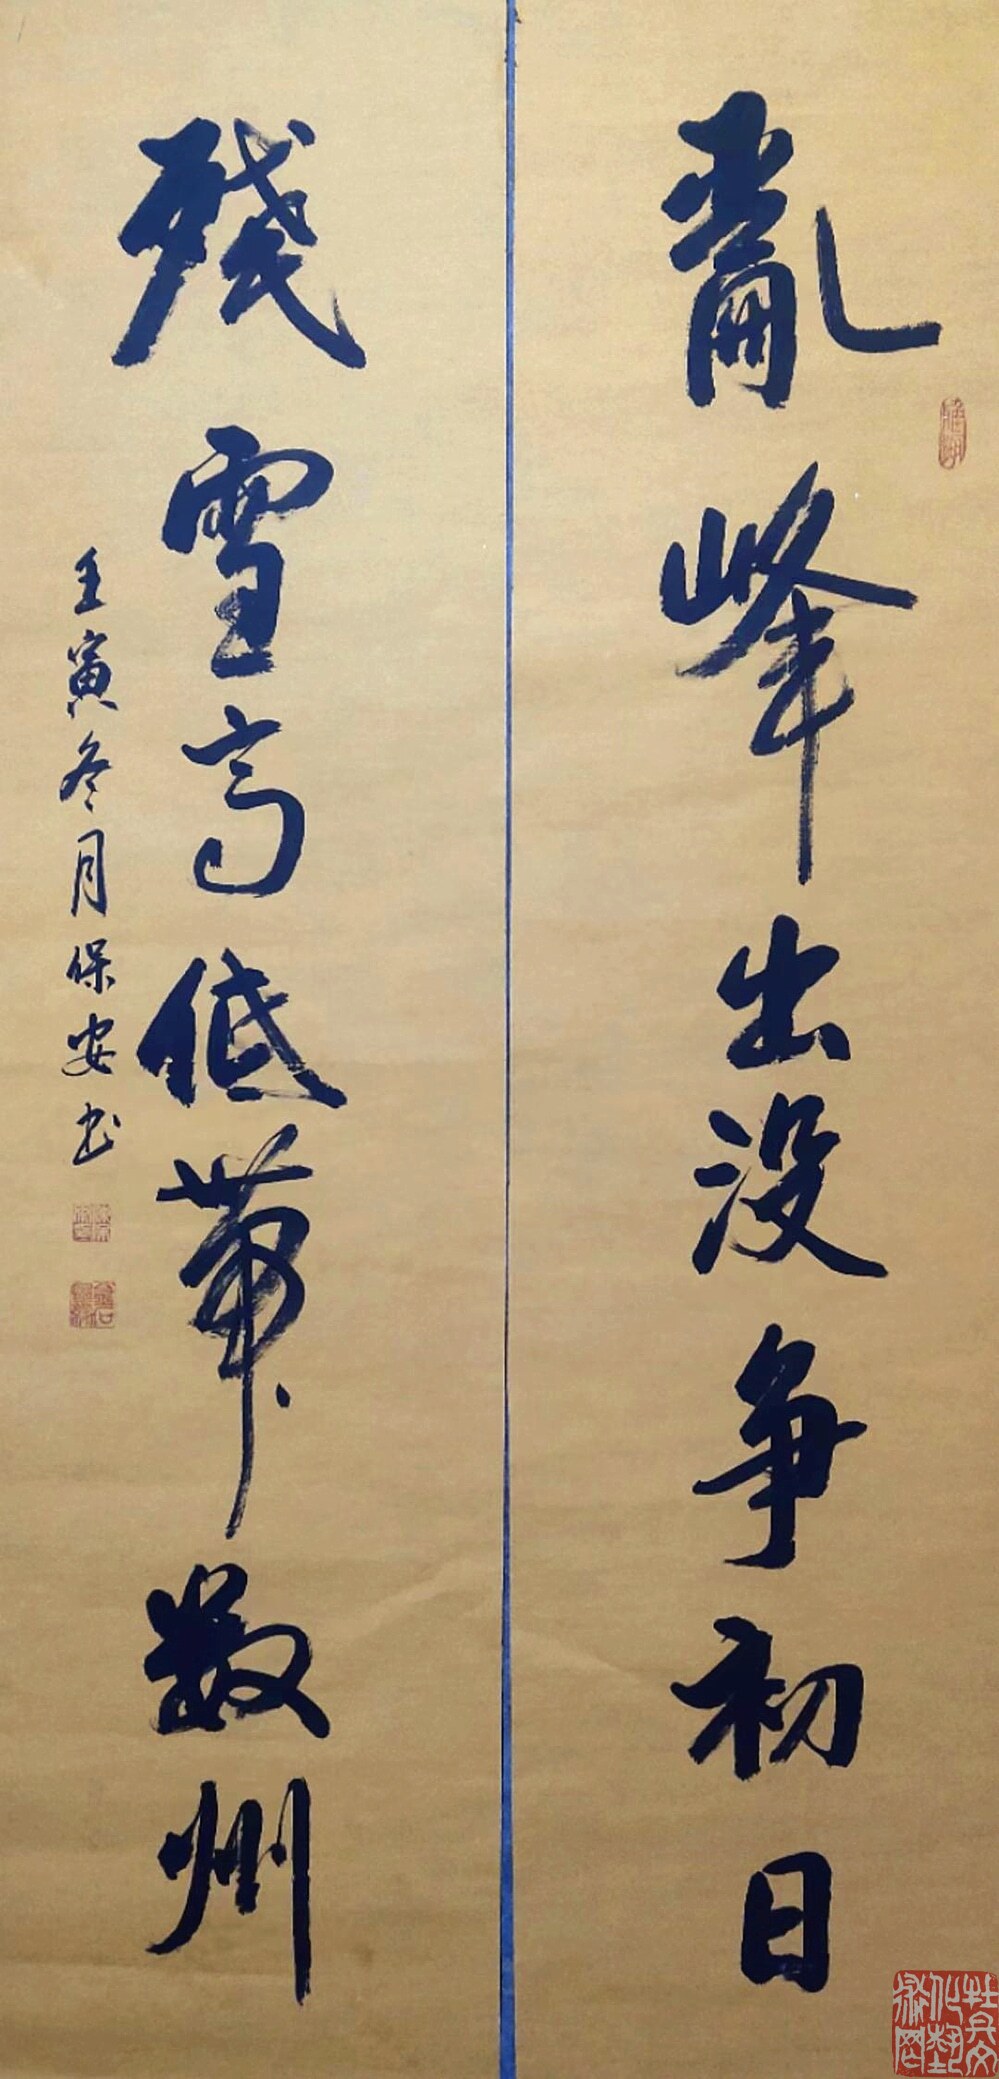 亂峰出没争初日
殘雪高低帶數州
壬寅冬月保安书